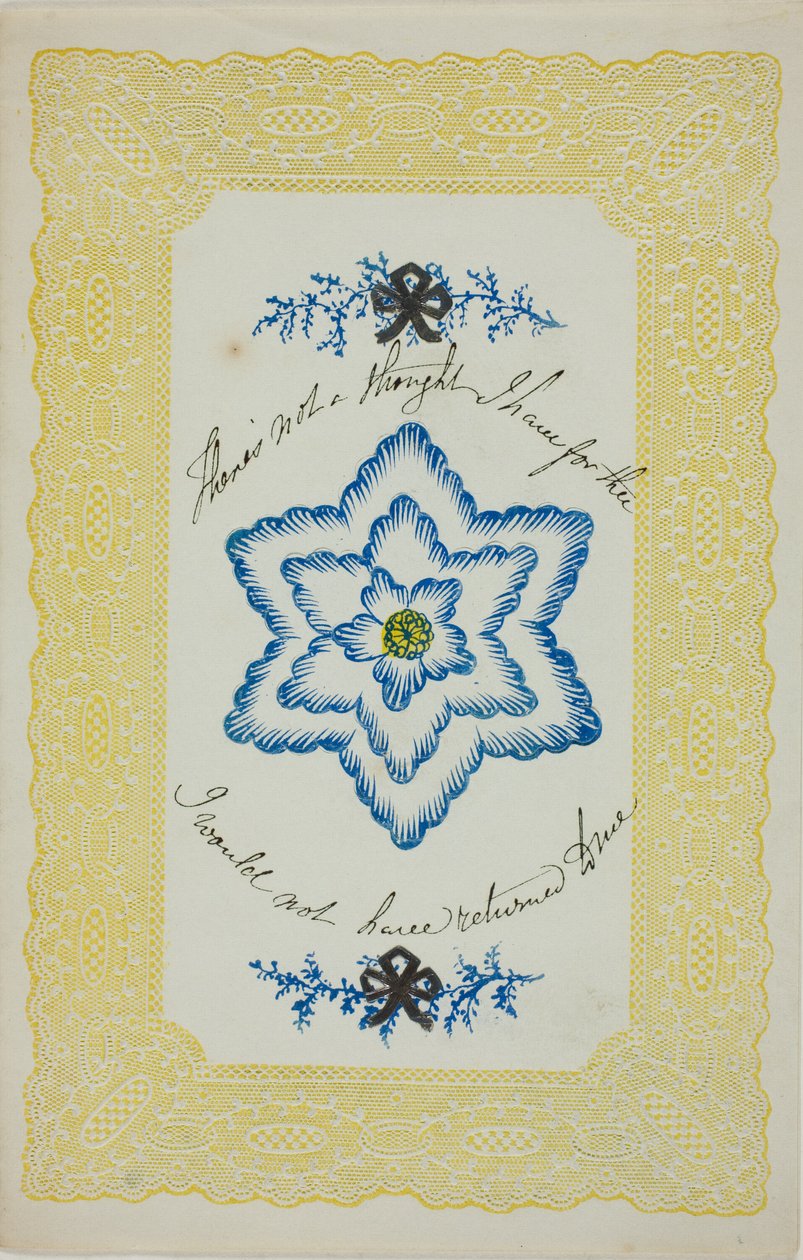 There's not a thought I have for thee
I would not have returned to me